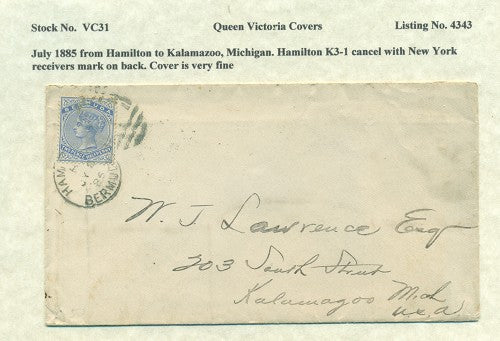 Stock No. VC31 Queen Victoria Covers Listing No. 4343
July 1885 from Hamilton to Kalamazoo, Michigan. Hamilton K3-1 cancel with New York
receivers mark on back. Cover is very fine
BERMUDA
HAM
85
BERMU
W. J. Lawrence Esq
203 South Street
Kalamazoo Mich
U.S.A.